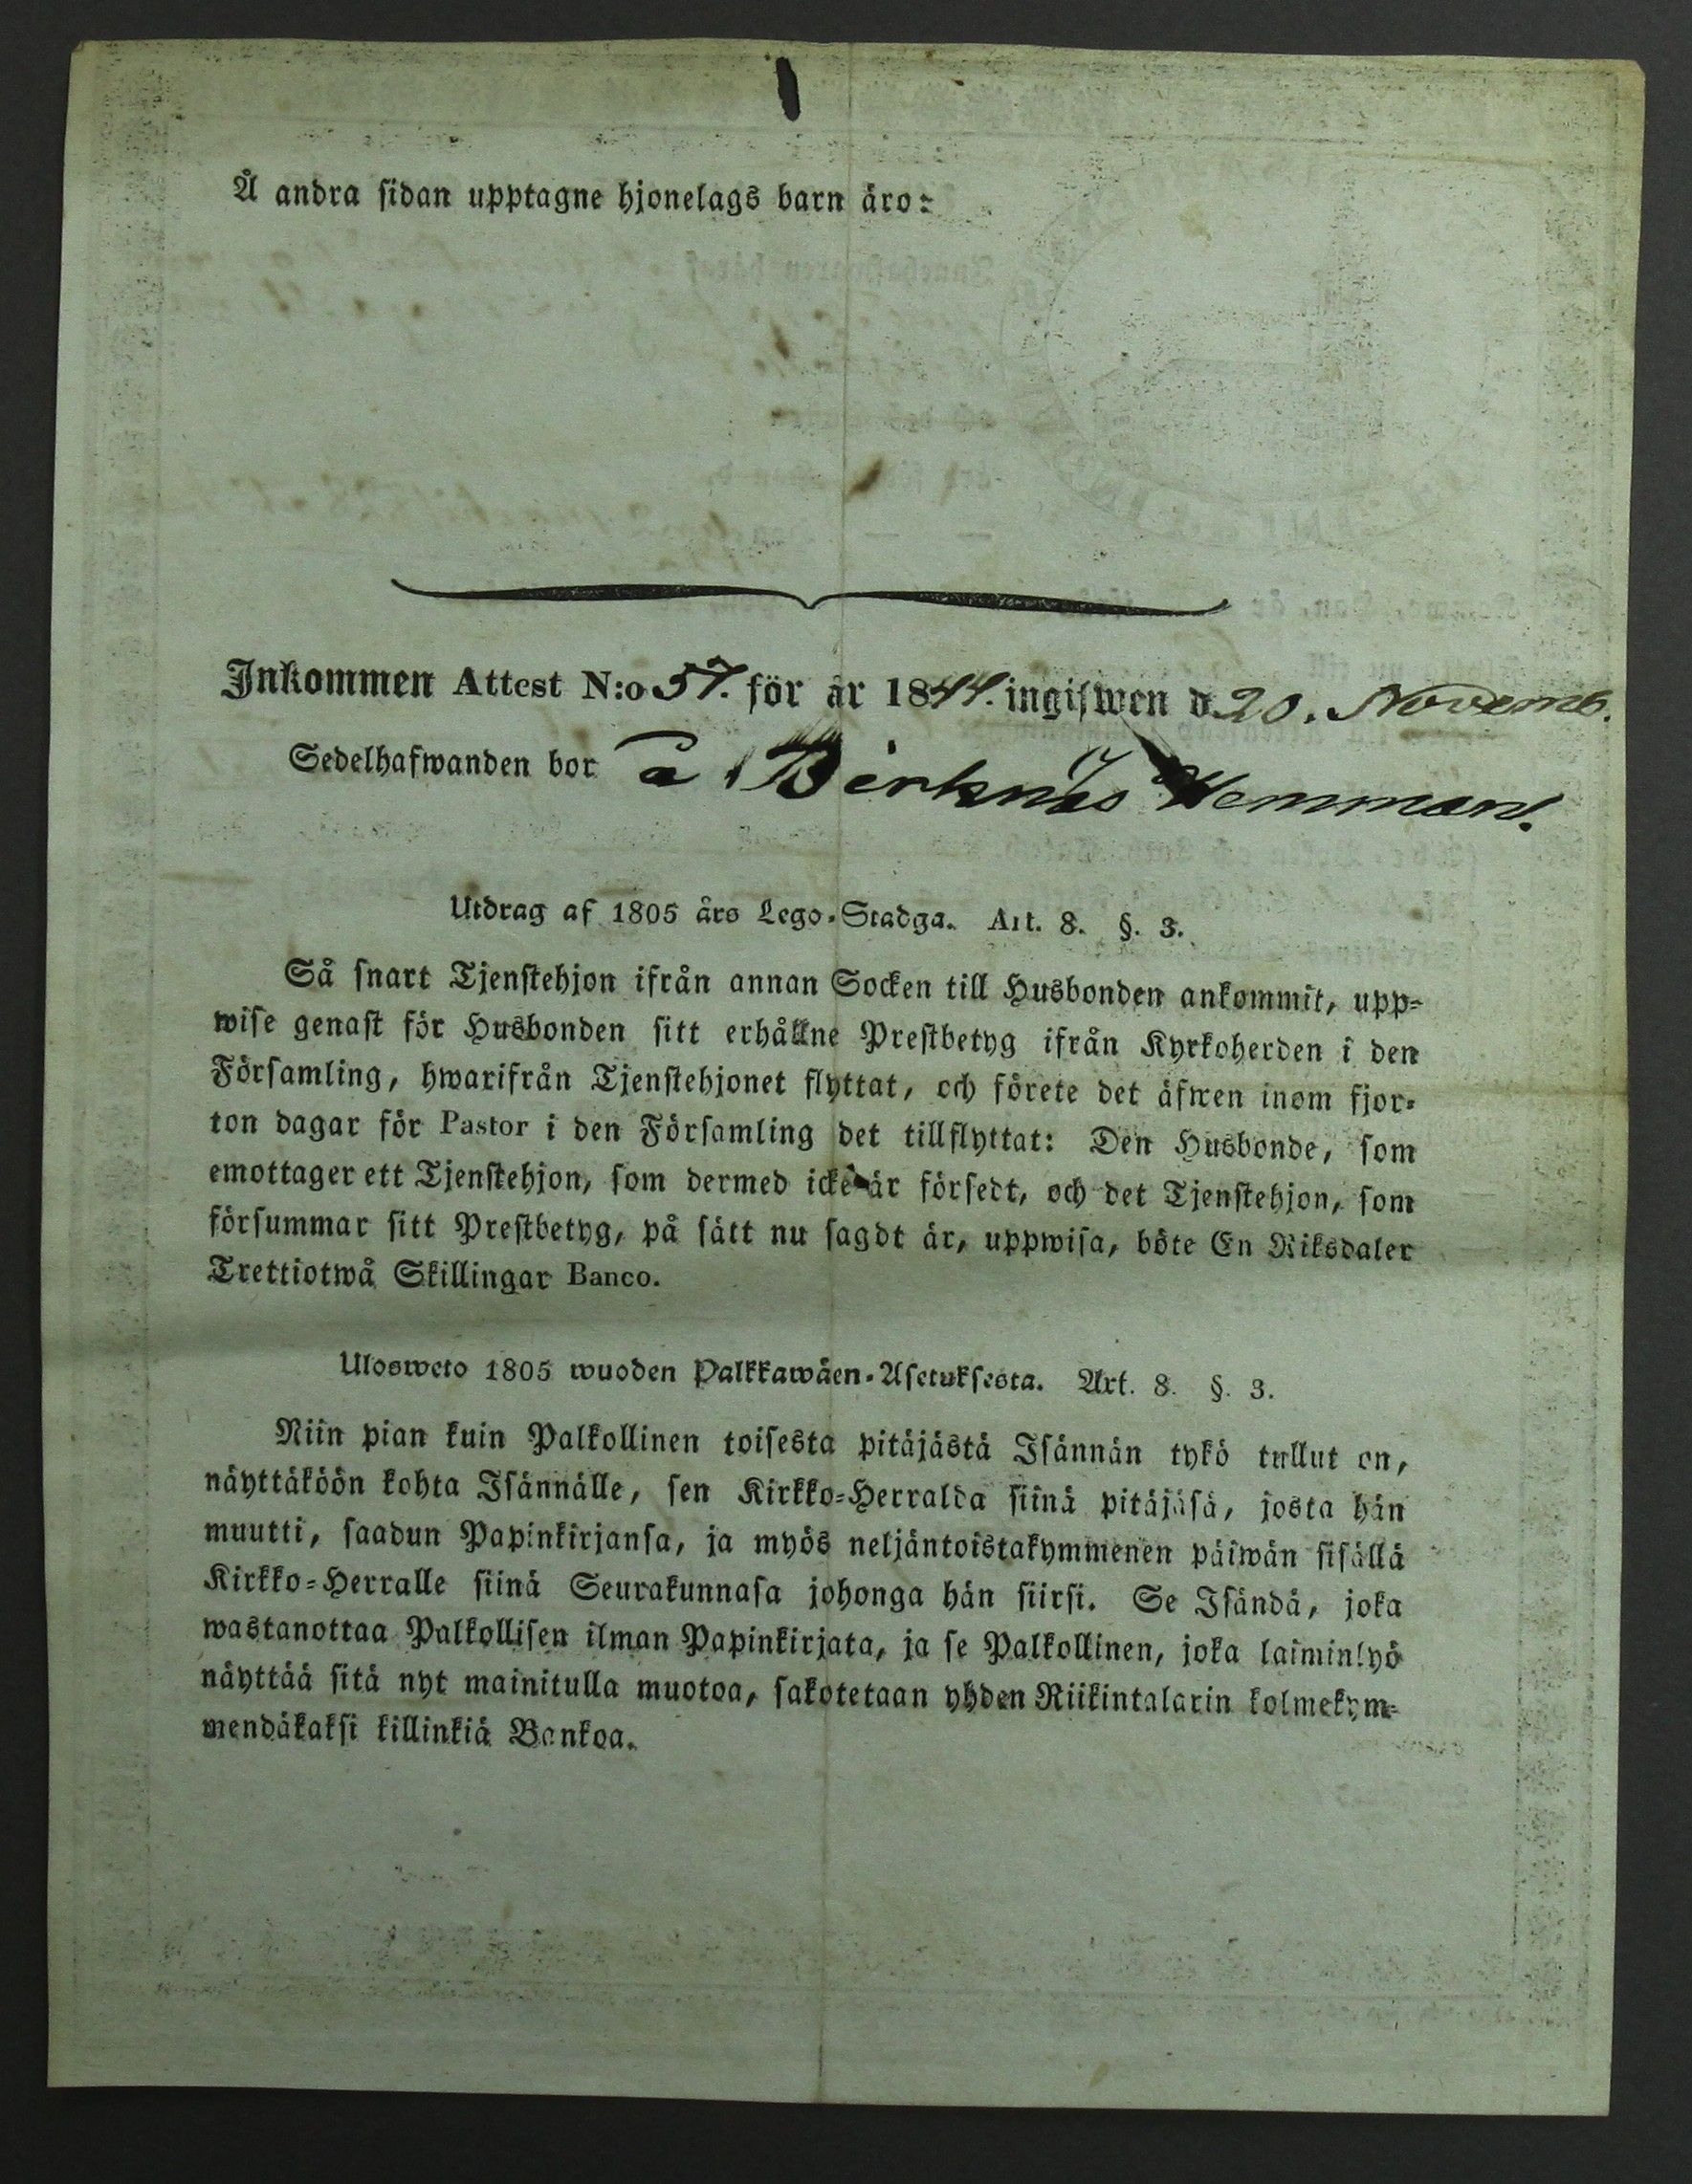 Å andra sidan upptagne hjonelags barn äro:
Inkommen Attest N:o 57. för år 1844. ingifwen d. 20. Novemb.
Sedelhafwanden bor å Birknäs Hemman.
Utdrag af 1805 års Lego-Stadga. Art. 8. §. 3.
Så snart Tjenstehjon ifrån annan Socken till Husbonden ankommit, upp-
wise genast för Husbonden sitt erhållne Prestbetyg ifrån Kyrkoherden i den
Församling, hwarifrån Tjenstehjonet flyttat, och förete det äfwen inom fjor-
ton dagar för Pastor i den Församling det tillflyttat: Den Husbonde, som
emottager ett Tjenstehjon, som dermed icke är försedt, och det Tjenstehjon, som
försummar sitt Prestbetyg, på sätt nu sagdt är, uppwisa, böte En Riksdaler
Trettiotwå Skillingar Banco.
Ulosweto 1805 wuoden Palkkawäen-Asetuksesta. Art. 8. §. 3.
Niin pian kuin Palkollinen toisesta pitäjästä Isännän tykö tullut on,
näyttäköön kohta Isännälle, sen Kirkko-Herralda siinä pitäjäsä, josta hän
muutti, saadun Papinkirjansa, ja myös neljäntoistakymmenen päiwän sisällä
Kirkko-Herralle siinä Seurakunnasa johonga hän siirsi. Se Isändä, joka
wastanottaa Palkollisen ilman Papinkirjata, ja se Palkollinen, joka laiminlyö
näyttää sitä nyt mainitulla muotoa, sakotetaan yhden Riikintalarin kolmekym-
mendäkaksi killinkiä Bankoa.